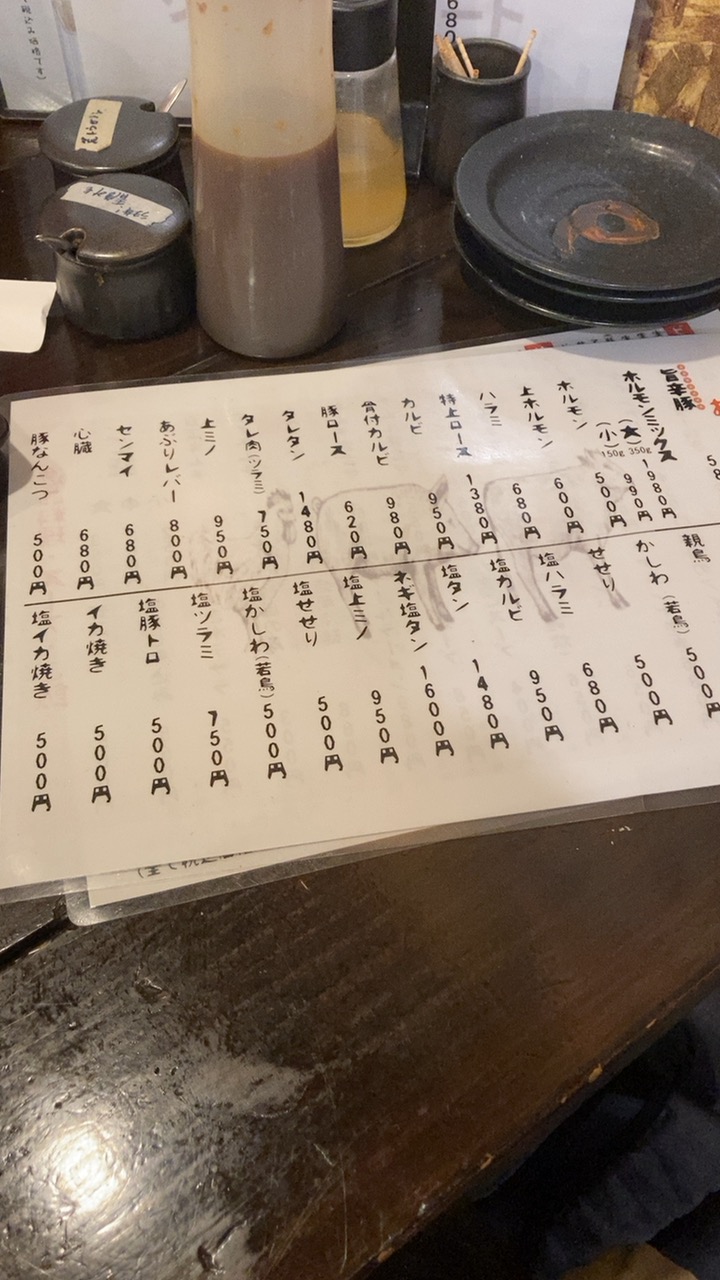 税込み価格です)
680
旨辛豚
ホルモンミックス
(大) 350g 1980円
(小) 150g 990円
ホルモン 500円
上ホルモン 600円
ハラミ 680円
特上ロース 1380円
カルビ 950円
骨付カルビ 980円
豚ロース 620円
タレタン 1480円
タレ肉(ツラミ) 750円
上ミノ 950円
あぶりレバー 800円
センマイ 680円
心臓 680円
豚なんこつ 500円
親鳥
かしわ(若鳥) 500円
せせり 500円
塩ハラミ 680円
塩カルビ 950円
塩タン 1480円
ネギ塩タン 1600円
塩上ミノ 950円
塩せせり 500円
塩かしわ(若鳥) 500円
塩ツラミ 750円
塩豚トロ 500円
イカ焼き 500円
塩イカ焼き 500円